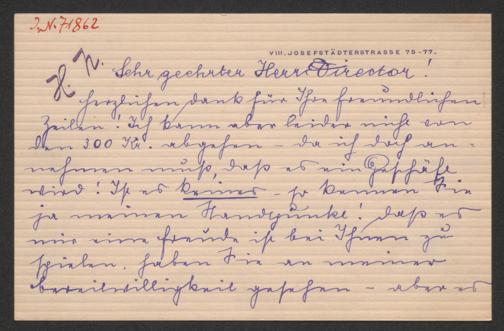 J.N. 71862
VIII. JOSEFSTÄDTERSTRASSE 75-77.
H. N.
Sehr geehrter Herr Director!
herzlichen dank für Ihre freundlichen
Zeilen! Ich kann aber leider nicht von
den 300 Kr. abgehen – da ich doch an-
nehmen muß, daß es ein Geschäft
wird! Ist es keines – so kennen Sie
ja meinen Standpunkt! daß es
mir eine freude ist bei Ihnen zu
spielen. haben Sie an meiner
bereitwilligkeit gesehen – aber es